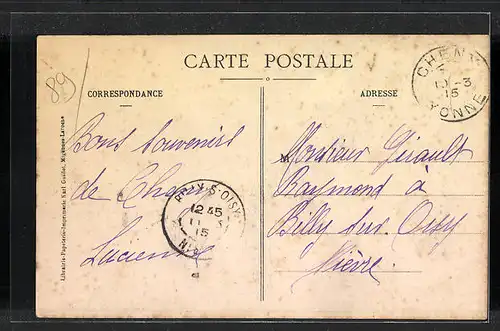 89
CARTE POSTALE
CORRESPONDANCE
ADRESSE
CHENY
10-3
15
YONNE
Bons Souvenirs
de Cheny
Lucienne
S-OISY
12 45
11 3
15
Monsieur Girault
Raymond à
Billy sur Oisy
Nièvre.
Librairie-Papeterie-Imprimerie Karl Guillot, Migennes-Laroche